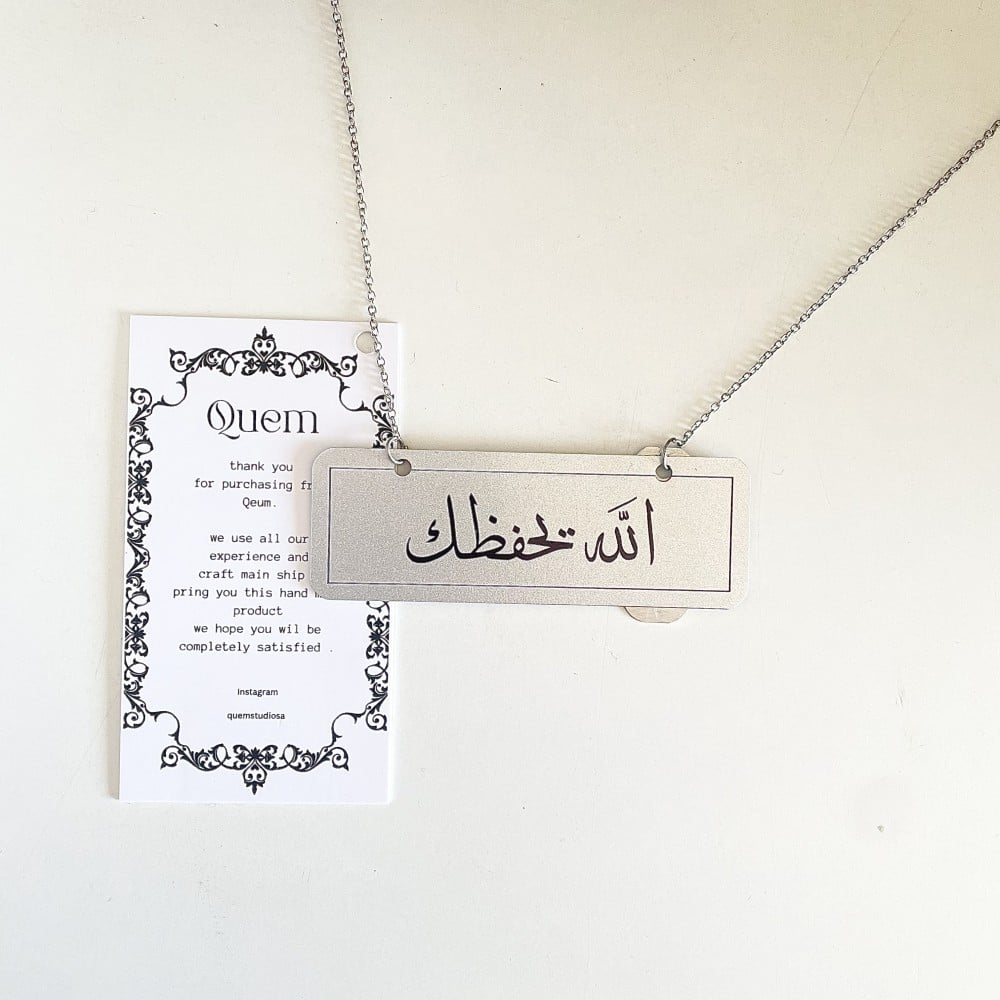 Quem
thank you
for purchasing
Qeum.
we use all our
experience and
craft main ship
pring you this hand
product
we hope you wil be
completely satisfied .
Instagram
quemstudiosa
الله يحفظك